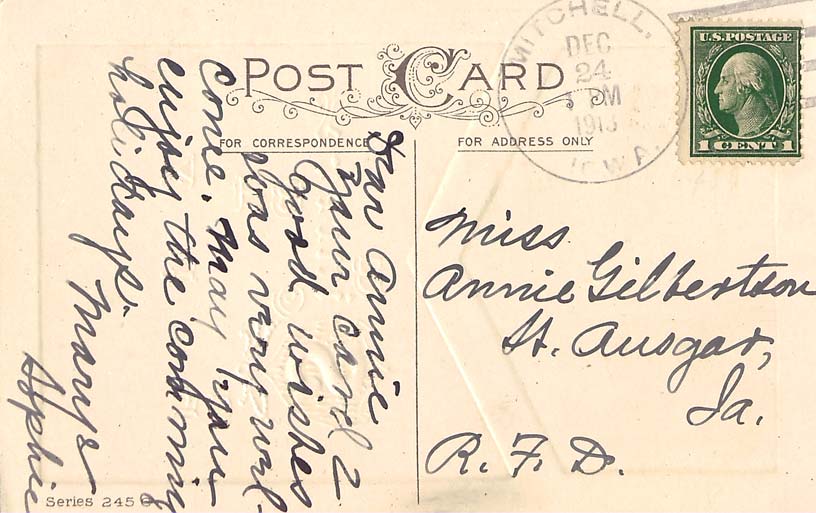 POST CARD
FOR CORRESPONDENCE
FOR ADDRESS ONLY
MITCHELL,
DEC
24
PM
1913
IOWA.
U.S. POSTAGE
1 CENT 1
Dear Annie
Your card &
Good wishes
was very wel-
come. May you
enjoy the comming
holidays.
Mary &
Sophie
Miss
Annie Gilbertson
St. Ansgar,
Ia.
R. F. D.
Series 245